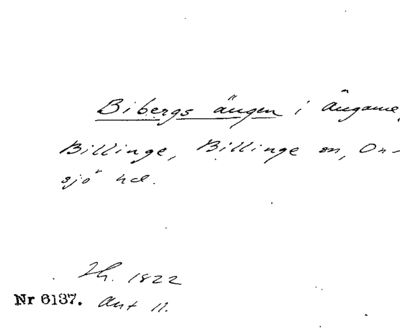 Bibergs ängen i Ängarne,
Billinge, Billinge sn, On-
sjö hd.
1822
Nr 6137. Akt 11.